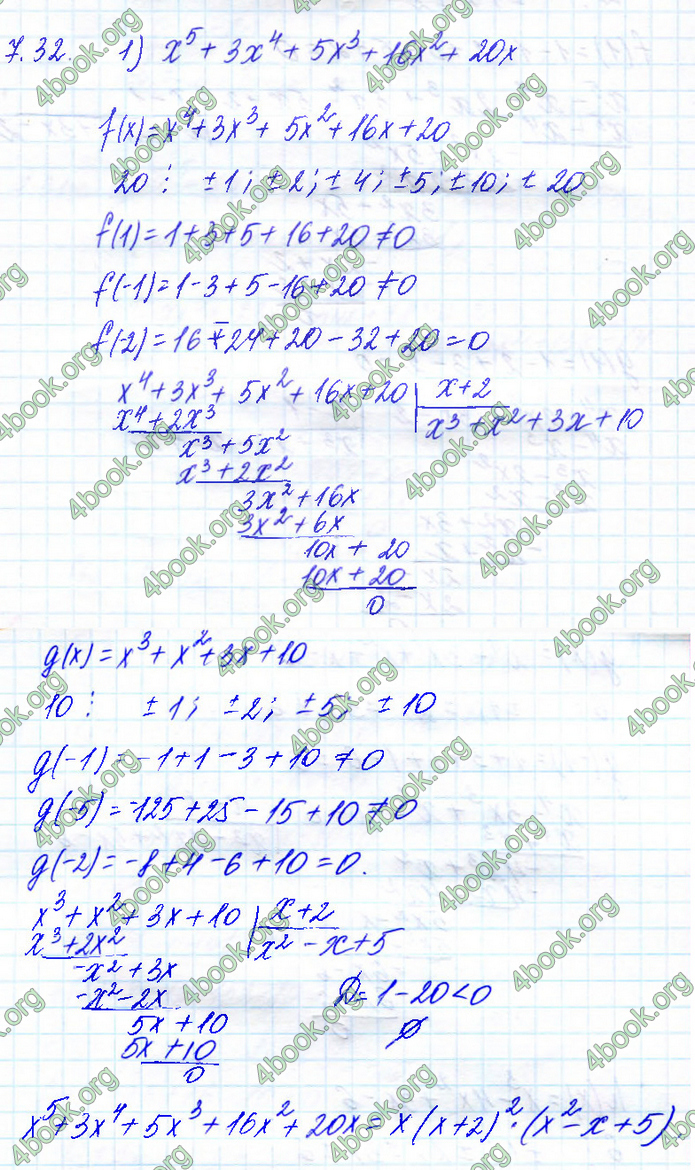 7.32. 1) x⁵ + 3x⁴ + 5x³ + 16x² + 20x
f(x) = x⁴ + 3x³ + 5x² + 16x + 20
20 ⋮ ±1; ±2; ±4; ±5; ±10; ±20
f(1) = 1 + 3 + 5 + 16 + 20 ≠ 0
f(-1) = 1 - 3 + 5 - 16 + 20 ≠ 0
f(-2) = 16 - 24 + 20 - 32 + 20 = 0
x⁴ + 3x³ + 5x² + 16x + 20 | x + 2
x⁴ + 2x³ | x³ + x² + 3x + 10
x³ + 5x²
x³ + 2x²
3x² + 16x
3x² + 6x
10x + 20
10x + 20
0
g(x) = x³ + x² + 3x + 10
10 ⋮ ±1; ±2; ±5; ±10
g(-1) = -1 + 1 - 3 + 10 ≠ 0
g(-5) = -125 + 25 - 15 + 10 ≠ 0
g(-2) = -8 + 4 - 6 + 10 = 0.
x³ + x² + 3x + 10 | x + 2
x³ + 2x² | x² - x + 5
-x² + 3x
-x² - 2x D = 1 - 20 < 0
5x + 10 ∅
5x + 10
0
x⁵ + 3x⁴ + 5x³ + 16x² + 20x = x(x + 2)² · (x² - x + 5)
4book.org